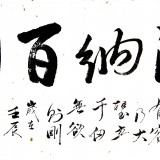 纳百
有容
乃大
壁立
千仞
無欲
則剛
歲在
壬辰